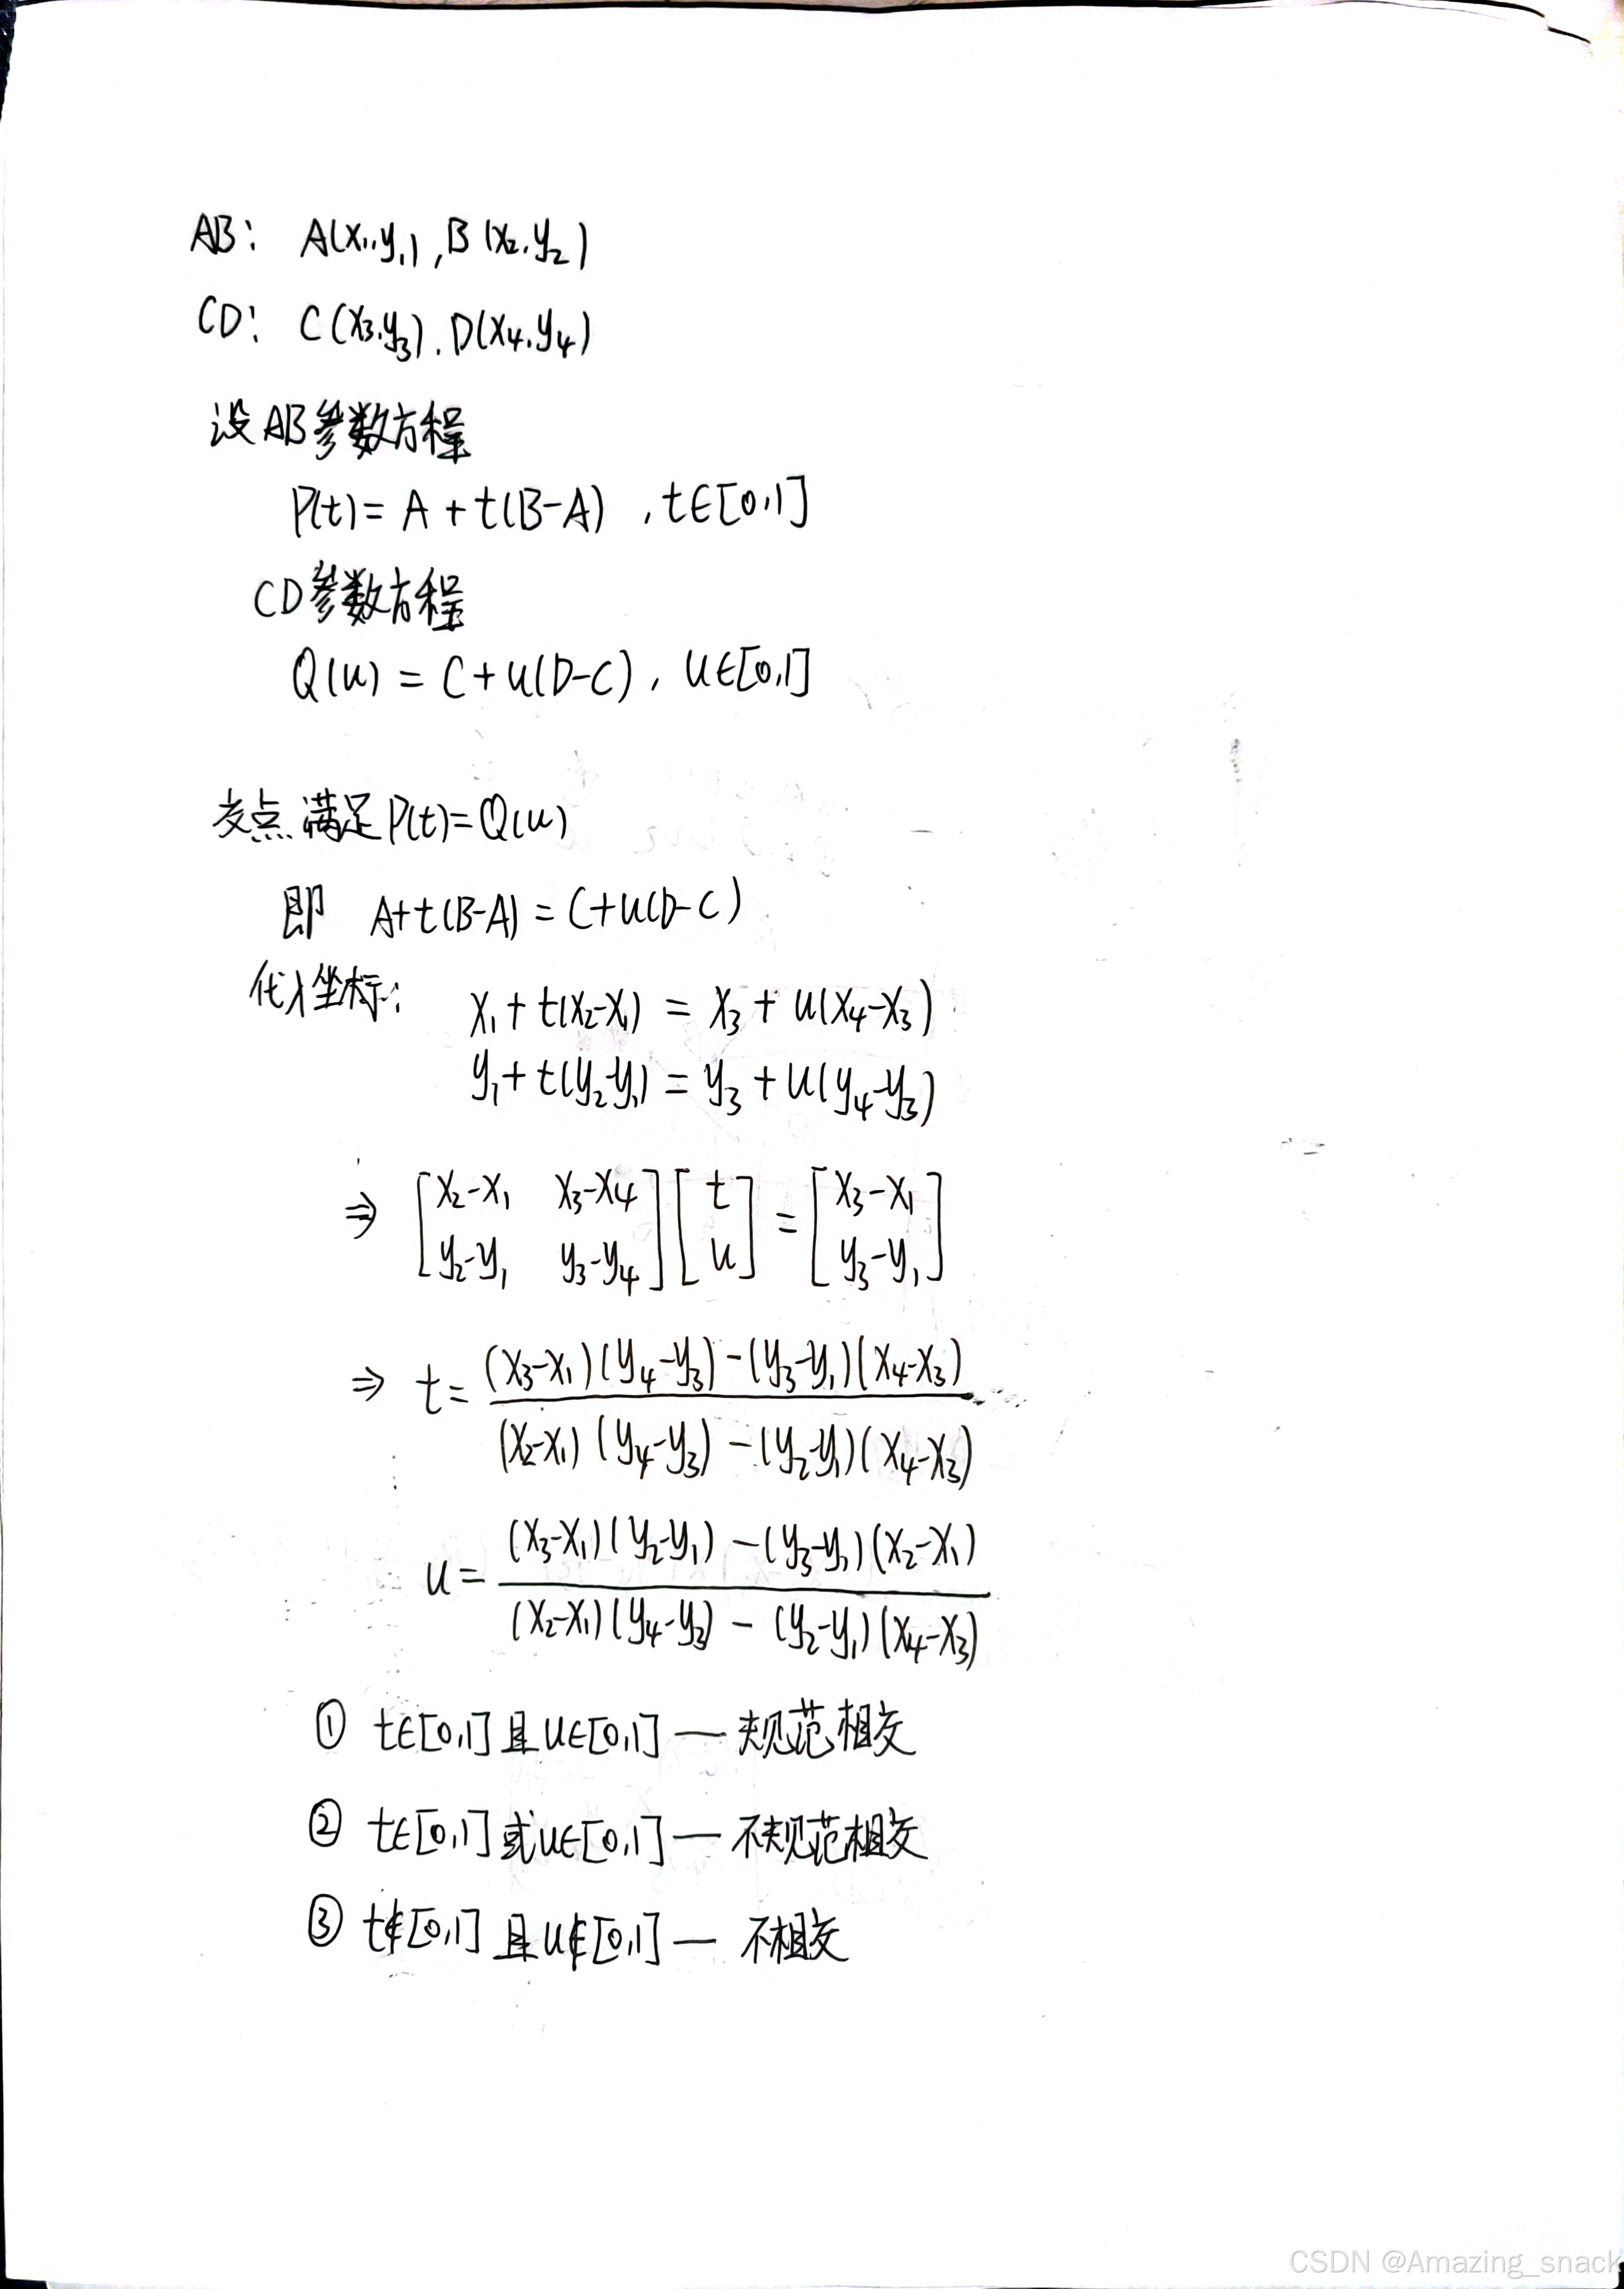 AB: A(x₁,y₁),B(x₂,y₂)
CD: C(x₃,y₃),D(x₄,y₄)
设AB参数方程
P(t)= A+t(B-A) , t∈[0,1]
CD参数方程
Q(u) = C+u(D-C), u∈[0,1]
交点满足P(t)=Q(u)
即 A+t(B-A) = C+u(D-C)
代入坐标: x₁+t(x₂-x₁) = x₃+u(x₄-x₃)
y₁+t(y₂-y₁) = y₃+u(y₄-y₃)
⇒ [x₂-x₁ x₃-x₄] [t] = [x₃-x₁]
[y₂-y₁ y₃-y₄] [u] [y₃-y₁]
⇒ t= (x₃-x₁)(y₄-y₃)-(y₃-y₁)(x₄-x₃)
(x₂-x₁)(y₄-y₃)-(y₂-y₁)(x₄-x₃)
u= (x₃-x₁)(y₂-y₁)-(y₃-y₁)(x₂-x₁)
(x₂-x₁)(y₄-y₃)-(y₂-y₁)(x₄-x₃)
① t∈[0,1]且u∈[0,1] — 规范相交
② t∈[0,1]或u∈[0,1] — 不规范相交
③ t∉[0,1]且u∉[0,1] — 不相交
CSDN @Amazing_snack